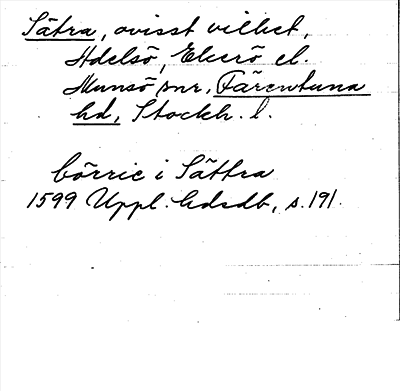 Sätra, ovisst vilket,
Adelsö, Ekerö el.
Munsö snr, Färentuna
hd, Stockh. l.
börrie i Sättra
1599 Uppl. hdsdb, s. 191.